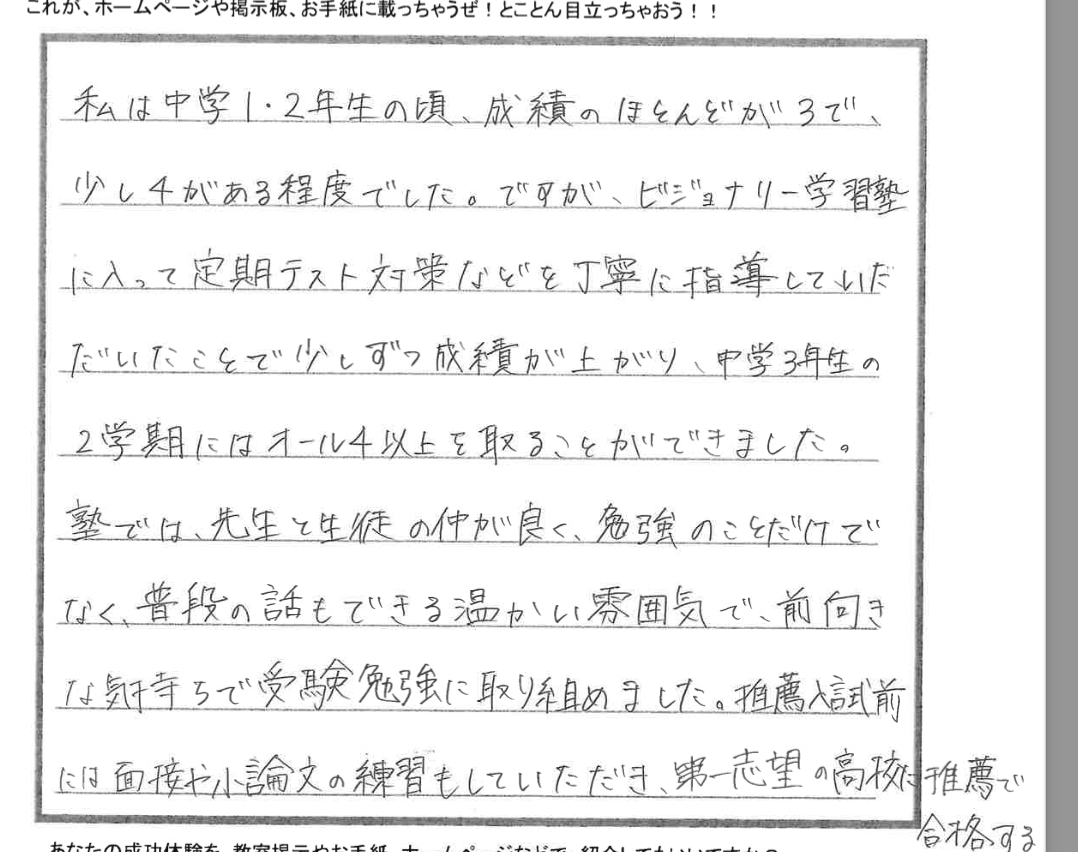 これが、ホームページや掲示板、お手紙に載っちゃうぜ！とことん目立っちゃおう！！
私は中学1・2年生の頃、成績のほとんどが3で、
少し4がある程度でした。ですが、ビジョナリー学習塾
に入って定期テスト対策などを丁寧に指導していただ
だいたことで少しずつ成績が上がり、中学3年生の
2学期にはオール4以上を取ることができました。
塾では、先生と生徒の仲が良く、勉強のことだけで
なく、普段の話もできる温かい雰囲気で、前向き
な気持ちで受験勉強に取り組めました。推薦入試前
には面接や小論文の練習もしていただき、第一志望の高校に推薦で
合格する
あなたの成功体験を、教室掲示やお手紙、ホームページなどで、紹介してもいいですか？